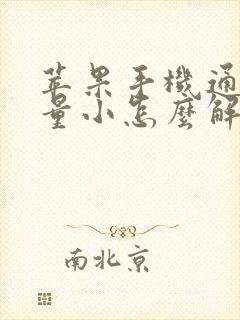 苹果手機通
量小怎麼解
南北京